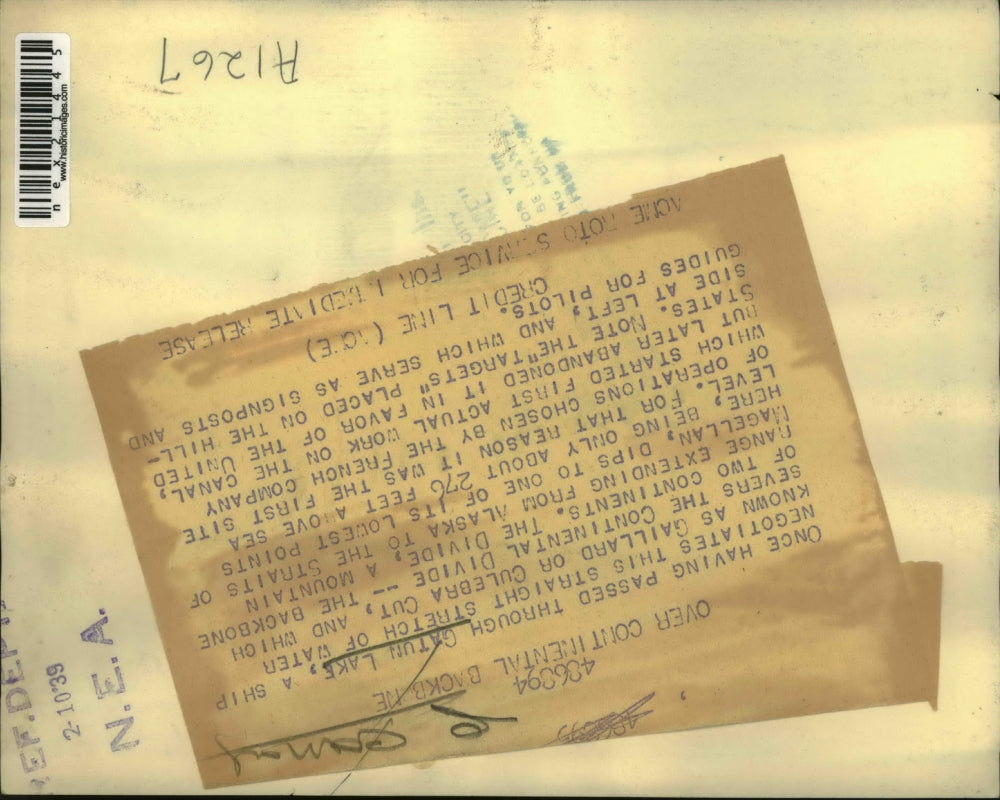 A1267
nex214145
www.historicimages.com
486894
OVER CONTINENTAL BACKBONE
ONCE HAVING PASSED THROUGH GATUN LAKE, A SHIP
NEGOTIATES THIS STRAIGHT STRETCH OF WATER
KNOWN AS GAILLARD OR CULEBRA CUT, AND WHICH
SEVERS THE CONTINENTAL DIVIDE -- THE BACKBONE
OF TWO CONTINENTS. THE DIVIDE, A MOUNTAIN
RANGE EXTENDING FROM ALASKA TO THE STRAITS OF
MAGELLAN, DIPS TO ONE OF ITS LOWEST POINTS
HERE, BEING ONLY ABOUT 276 FEET ABOVE SEA
LEVEL. FOR THAT REASON IT WAS THE FIRST SITE
OF OPERATIONS CHOSEN BY THE FRENCH COMPANY
WHICH STARTED FIRST ACTUAL WORK ON THE CANAL,
BUT LATER ABANDONED IT IN FAVOR OF THE UNITED
STATES. NOTE THE "TARGETS" PLACED ON THE HILL-
SIDE AT LEFT, AND WHICH SERVE AS SIGNPOSTS AND
GUIDES FOR PILOTS.
CREDIT LINE (ACME)
ACME ROTO SERVICE FOR IMMEDIATE RELEASE
EF. DEP
2-10-39
N. E. A.